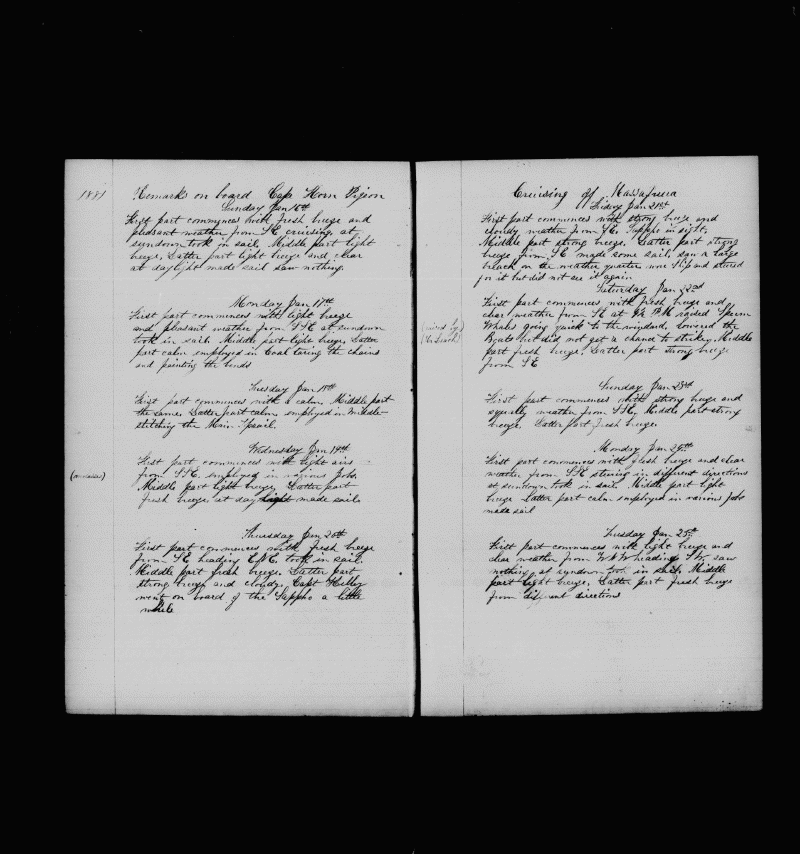 1881
Remarks on board Cape Horn Pigeon
Sunday Jan 16th
First part commences with fresh breeze and
pleasant weather from SE cruising at
sundown took in sail. Middle part light
breeze, Latter part light breeze and clear
at daylight made sail saw nothing.
Monday Jan 17th
First part commences with light breeze
and pleasant weather from SSE at sundown
took in sail. Middle part light breeze, Latter
part calm employed in Coal taring the chains
and painting the bends
Tuesday Jan 18th
First part commences with a calm. Middle part
the same. Latter part calm employed in Middle-
stitching the Main Topsail.
Wednesday Jan 19th
First part commences with light airs
from SSE, employed in various Jobs.
Middle part light breeze, Latter part
fresh breeze at daylight made sail
Thursday Jan 20th
First part commences with fresh breeze
from SE heading ENE took in sail.
Middle part fresh breeze. Latter part
strong breeze and cloudy, Capt
went on board of the Sappho a little
while
Cruising off Massafuera
Friday Jan 21st
First part commences with strong breeze and
cloudy weather from SE. Sappho in sight.
Middle part strong breeze. Latter part strong
breeze from SE made some sail, saw a large
breach on the weather quarter wore Ship and steered
for it but did not see it again
Saturday Jan 22nd
First part commences with fresh breeze and
clear weather from SE at PM raised Sperm
Whales going quick to the windard, lowered the
Boats but did not get a chance to strike, Middle
part fresh breeze, Latter part strong breeze
from SE
Sunday Jan 23rd
First part commences with strong breeze and
squally weather from SSE, Middle part strong
breeze. Latter part fresh breeze.
Monday Jan 24th
First part commences with fresh breeze and clear
weather from SSE stering in different directions
at sundown took in sail. Middle part light
breeze Latter part calm employed in various Jobs
made sail
Tuesday Jan 25th
First part commences with light breeze and
clear weather from WNW heading SW. saw
nothing, at sundown took in sail, Middle
part light breeze, Latter part fresh breeze
from different directions